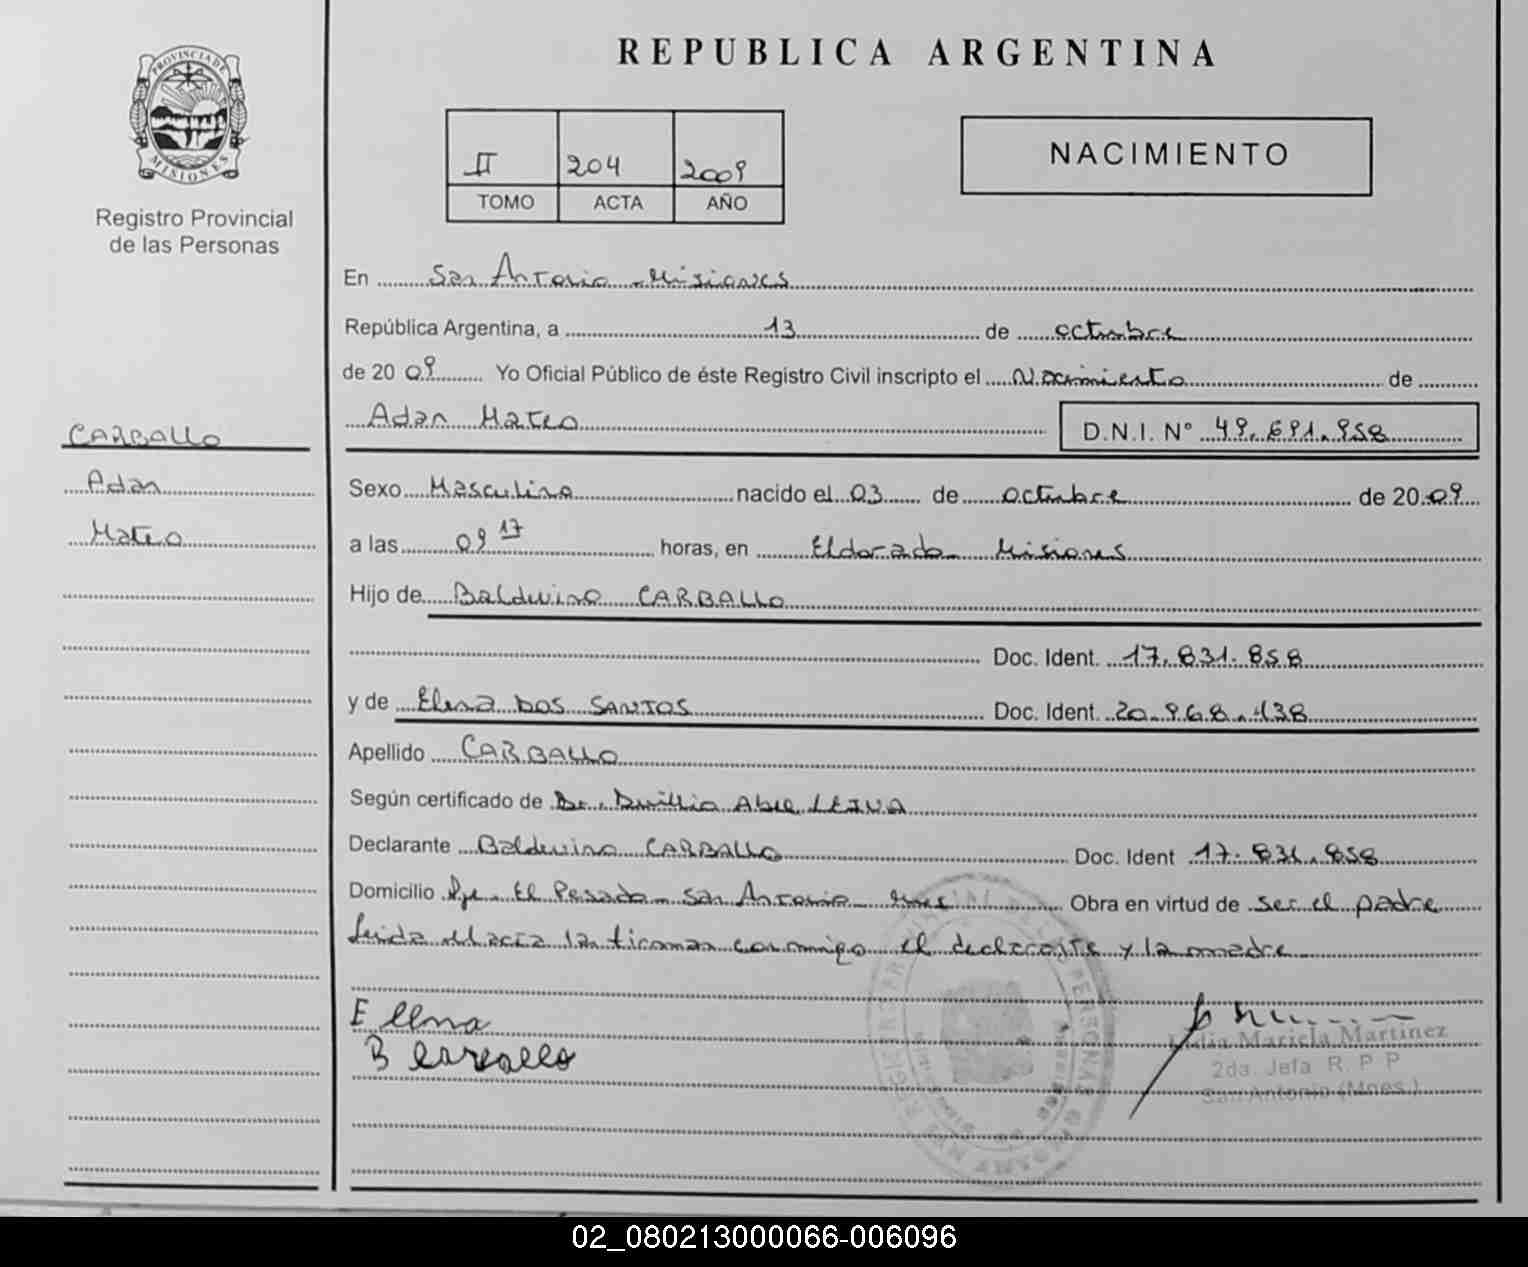 REPUBLICA ARGENTINA
PROVINCIA DE MISIONES
Registro Provincial
de las Personas
II 204 2009
TOMO ACTA AÑO
NACIMIENTO
En San Antonio - Misiones
República Argentina, a 13 de octubre
de 20 09 Yo Oficial Público de éste Registro Civil inscripto el Nacimiento de
Adan Mateo D.N.I. N° 49.691.958
CARBALLO
Adan
Mateo
Sexo Masculino nacido el 03 de octubre de 20 09
a las 09 17 horas, en Eldorado - Misiones
Hijo de Balduino CARBALLO
Doc. Ident. 17.831.858
y de Elena DOS SANTOS Doc. Ident. 20.968.138
Apellido CARBALLO
Según certificado de Dr. Duillio Abel LEIVA
Declarante Balduino CARBALLO Doc. Ident 17.831.858
Domicilio El Pesado - San Antonio Obra en virtud de ser el padre
Leida el acta la firman conmigo el declarante y la madre
Ellena
B Carballo
Lidia Mariela Martinez
2da. Jefa R. P. P
San Antonio (Mnes.)
02_080213000066-006096